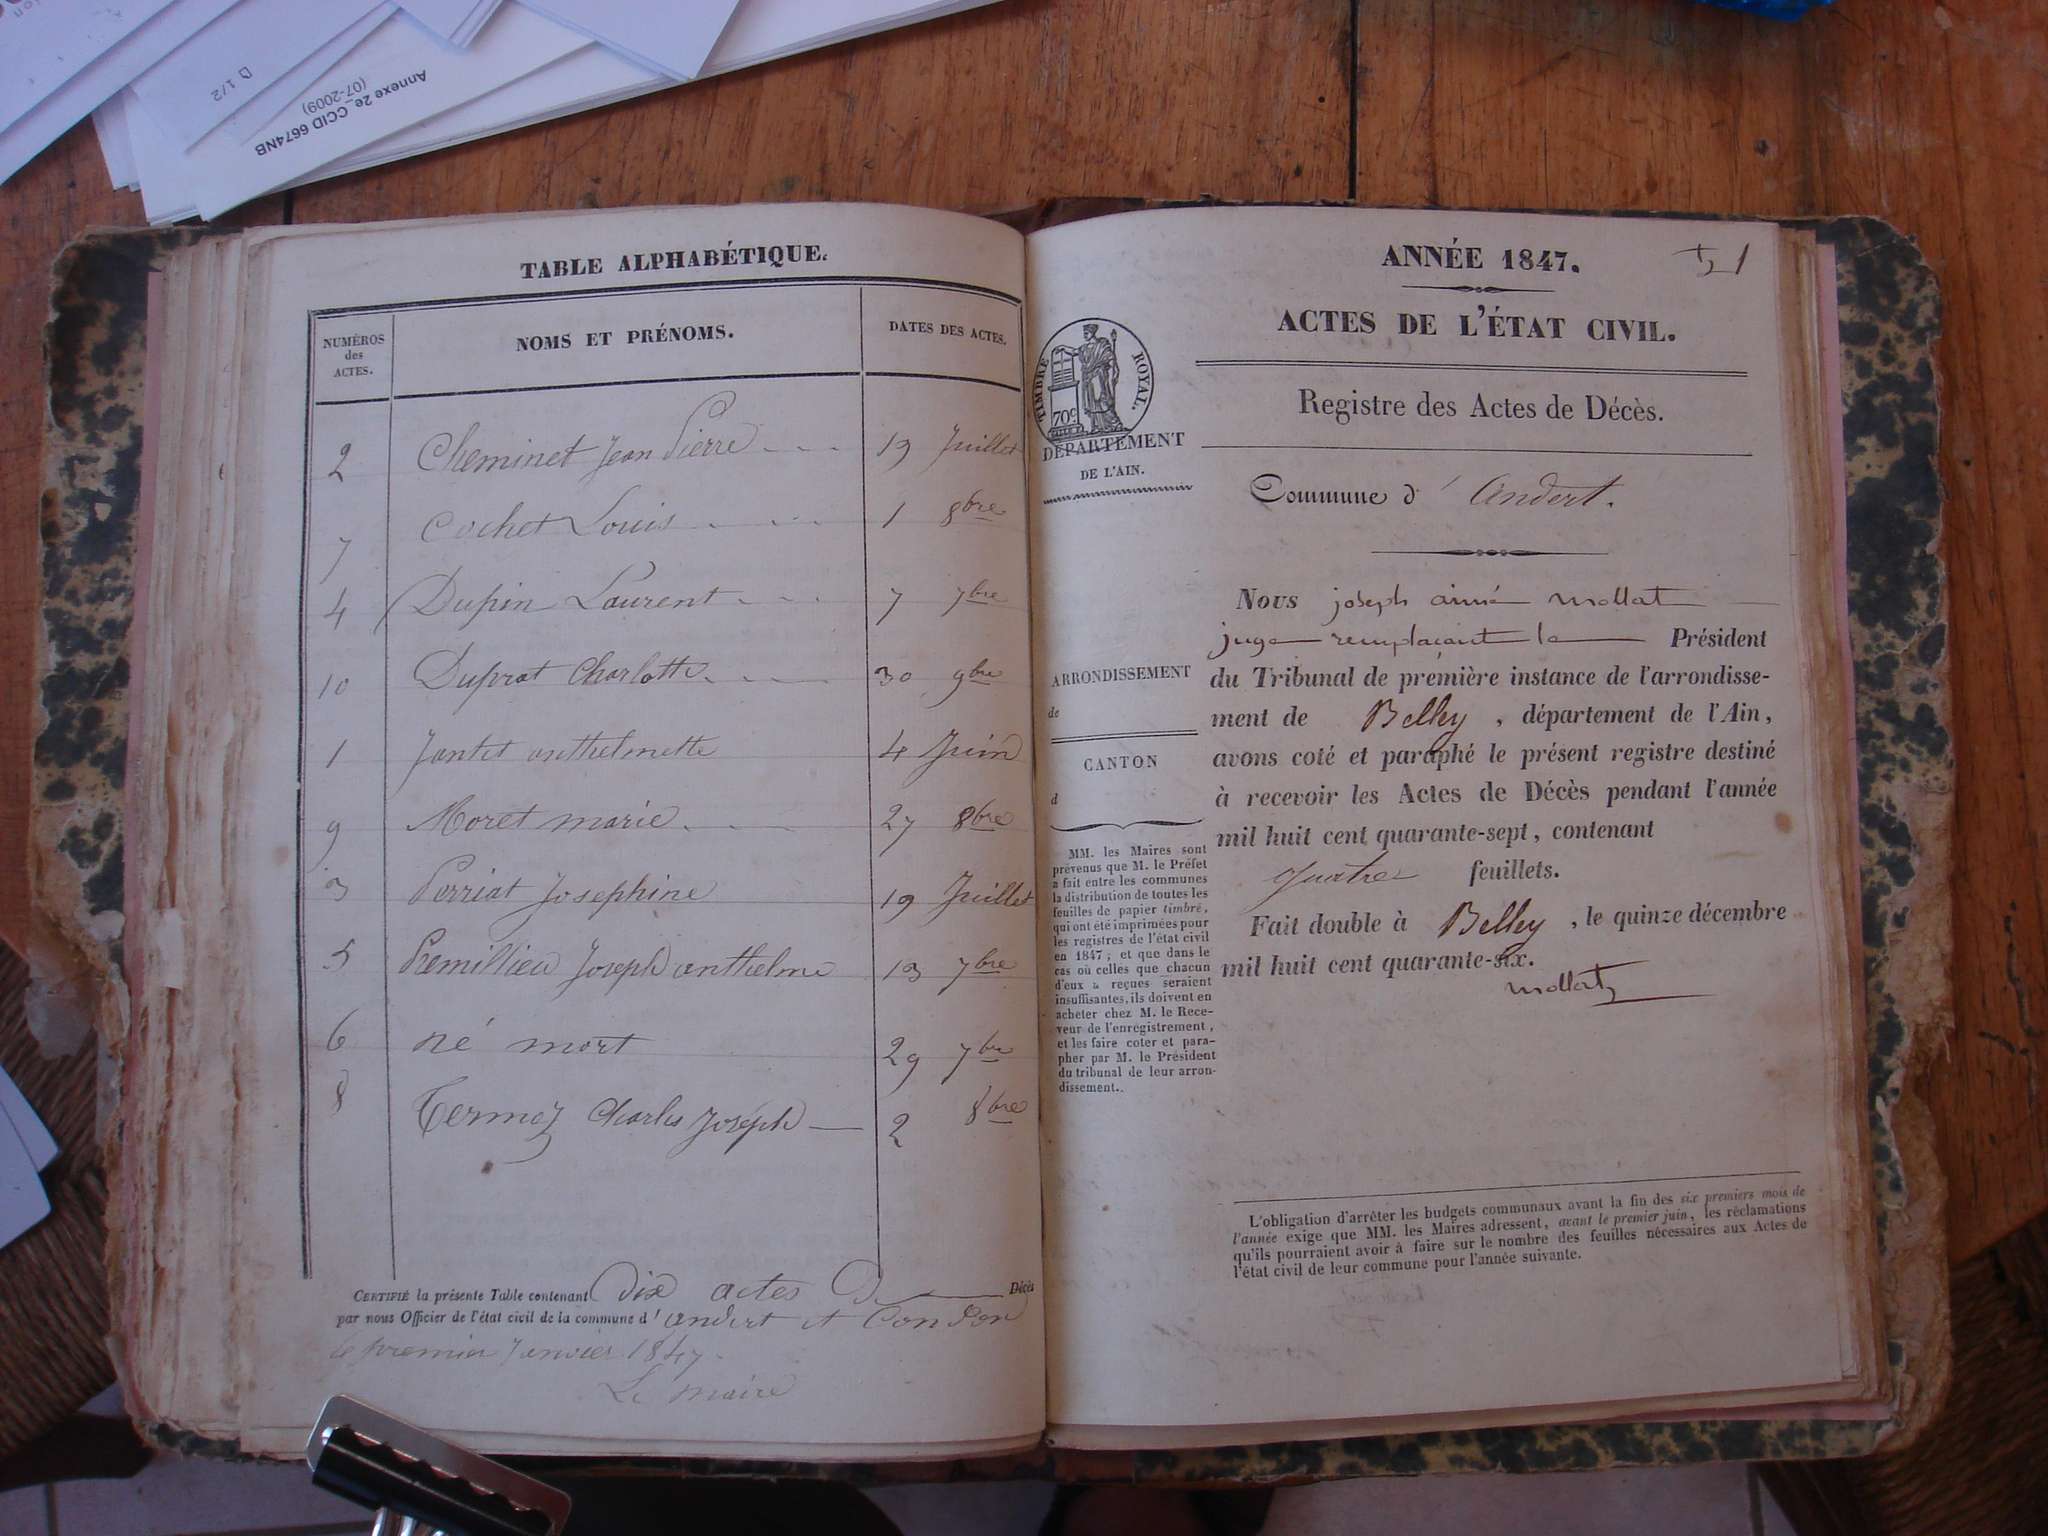 D 1/2
Annexe 2e_CCID 6674NB
(07-2009)
TABLE ALPHABÉTIQUE.
NUMÉROS des ACTES.
NOMS ET PRÉNOMS.
DATES DES ACTES.
2 Cheminet Jean Pierre 19 Juillet
7 Cochet Louis 1 8bre
4 Dupin Laurent 7 7bre
10 Duprat Charlotte 30 9bre
1 Jantet anthelmette 4 Juin
9 Moret marie 27 8bre
3 Perriat Josephine 19 Juillet
5 Premillieu Joseph anthelme 13 7bre
6 né mort 29 7bre
8 Termoz Charles Joseph 2 8bre
CERTIFIÉ la présente Table contenant dix actes D Décès
par nous Officier de l'état civil de la commune d' andert et Condon
le premier Janvier 1847.
Le maire
ANNÉE 1847.
1
ACTES DE L'ÉTAT CIVIL.
TIMBRE ROYAL.
70c
DÉPARTEMENT
DE L'AIN.
ARRONDISSEMENT
de
CANTON
d
MM. les Maires sont
prévenus que M. le Préfet
a fait entre les communes
la distribution de toutes les
feuilles de papier timbré,
qui ont été imprimées pour
les registres de l'état civil
en 1847; et que dans le
cas où celles que chacun
d'eux a reçues seraient
insuffisantes, ils doivent en
acheter chez M. le Rece-
veur de l'enregistrement,
et les faire coter et para-
pher par M. le Président
du tribunal de leur arron-
dissement.
Registre des Actes de Décès.
Commune d' Andert.
Nous joseph aimé mollat
juge remplaçant le Président
du Tribunal de première instance de l'arrondisse-
ment de Belley, département de l'Ain,
avons coté et paraphé le présent registre destiné
à recevoir les Actes de Décès pendant l'année
mil huit cent quarante-sept, contenant
quatre feuillets.
Fait double à Belley, le quinze décembre
mil huit cent quarante-six.
mollat
L'obligation d'arrêter les budgets communaux avant la fin des six premiers mois de
l'année exige que MM. les Maires adressent, avant le premier juin, les réclamations
qu'ils pourraient avoir à faire sur le nombre des feuilles nécessaires aux Actes de
l'état civil de leur commune pour l'année suivante.